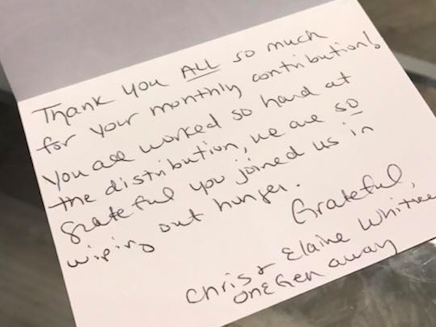 Thank you ALL so much
for your monthly contribution!
You all worked so hard at
the distribution, we are so
grateful you joined us in
wiping out hunger.
Grateful,
Chris + Elaine
OneGen away